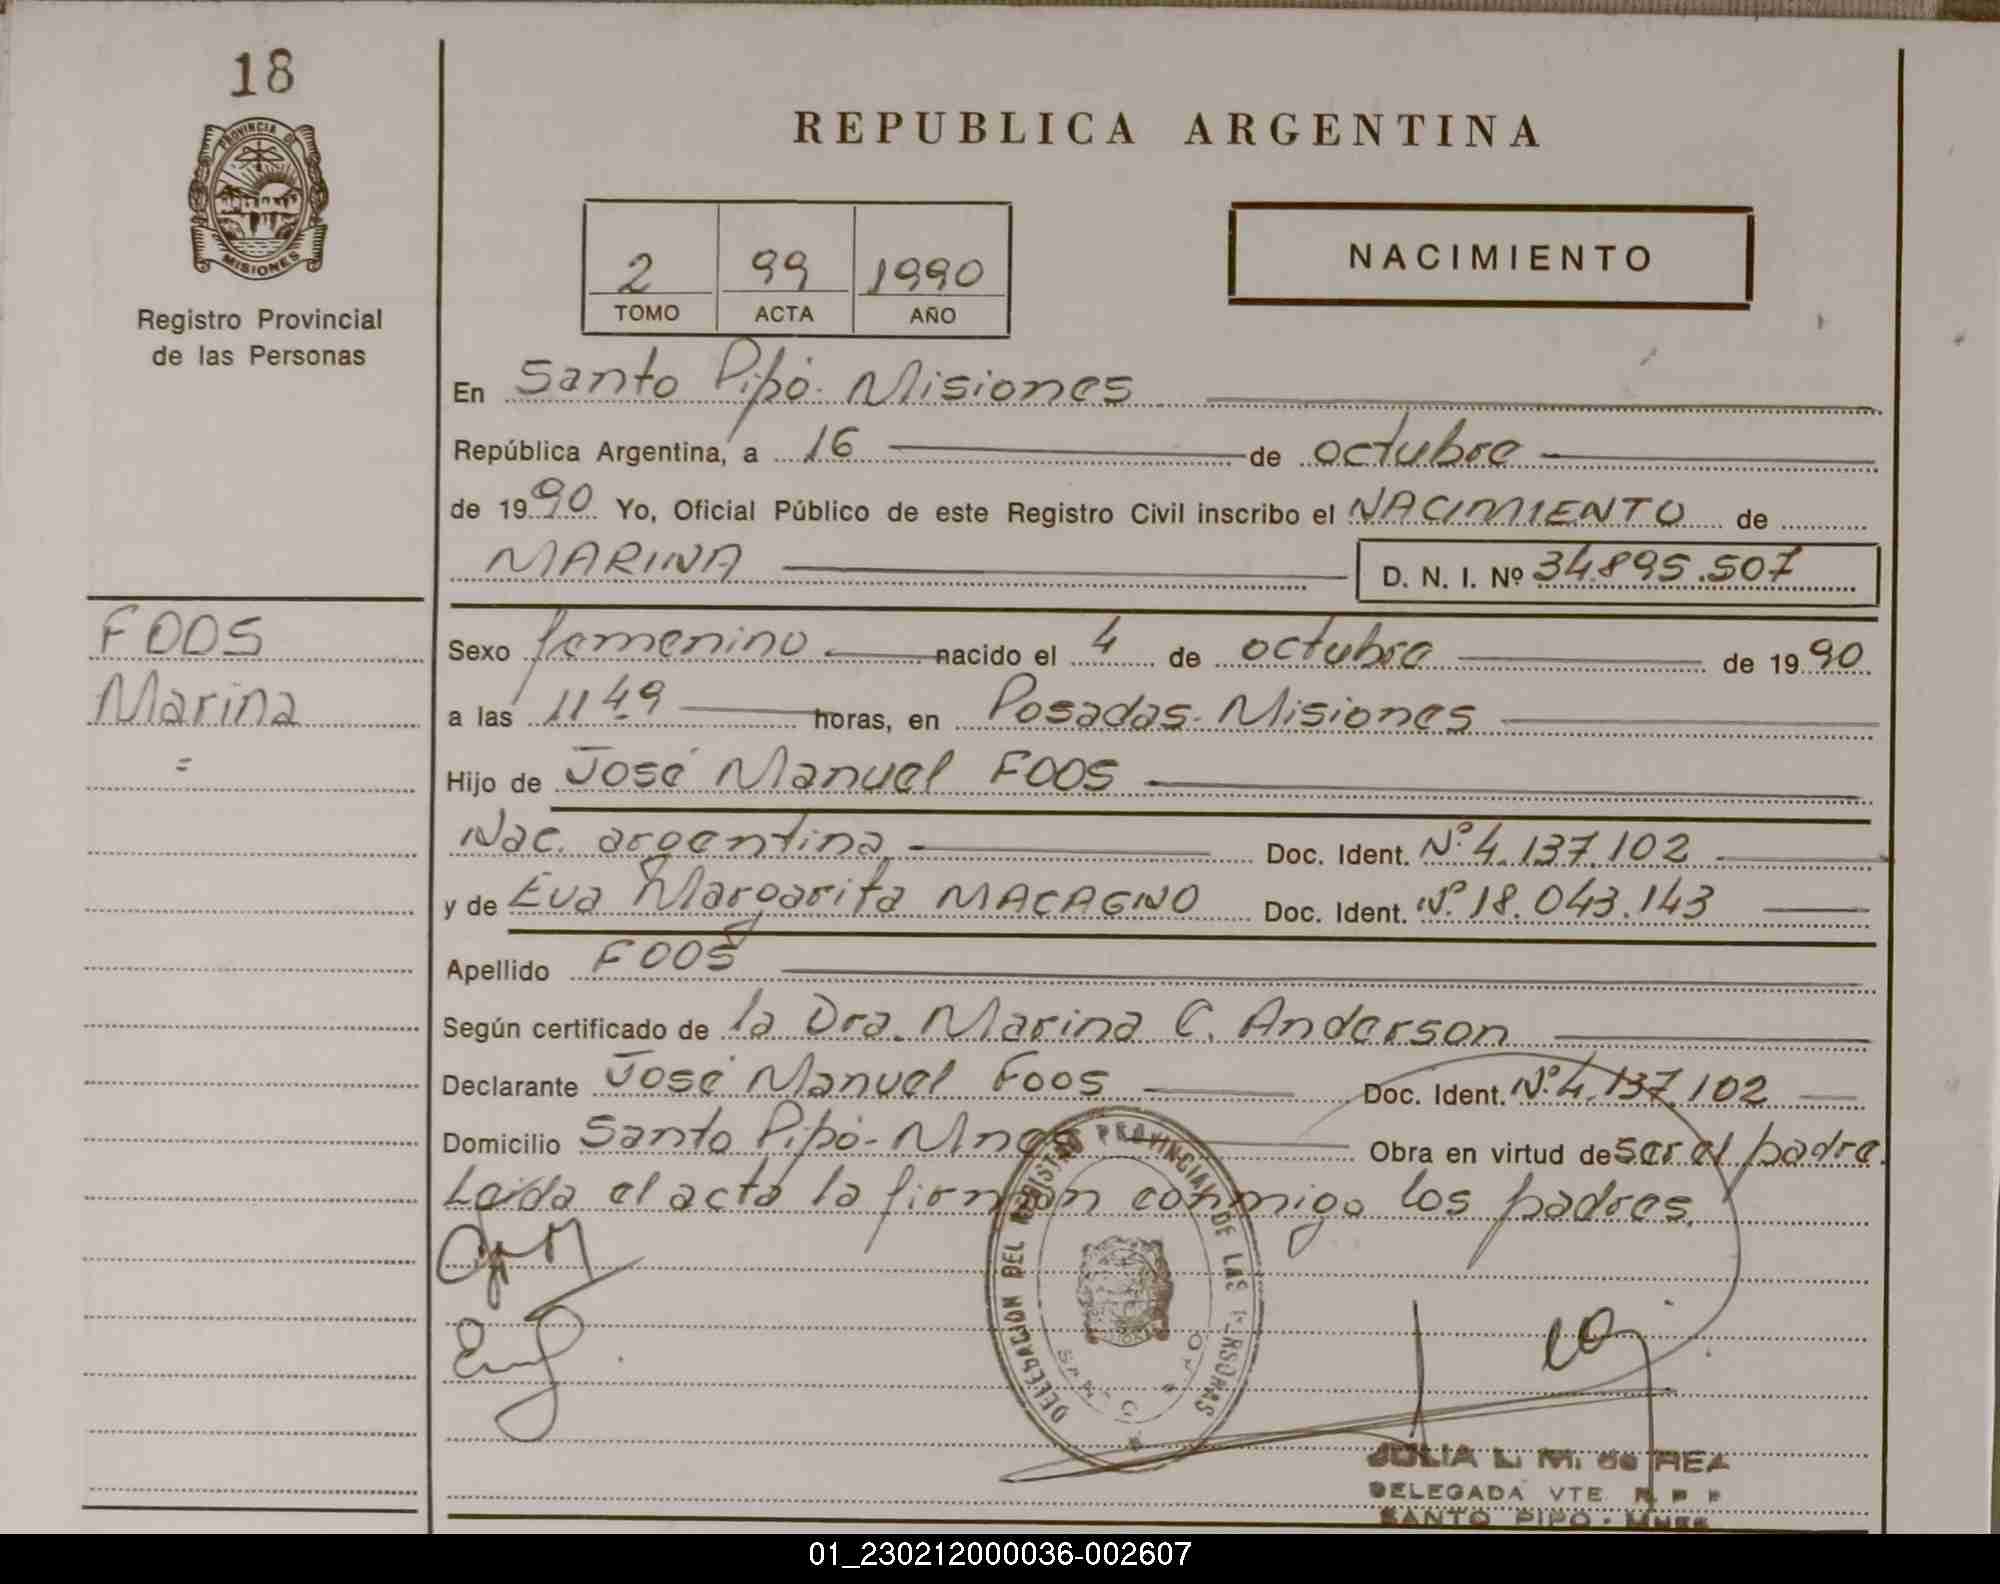 18
PROVINCIA DE
MISIONES
Registro Provincial
de las Personas
REPUBLICA ARGENTINA
2 99 1990
TOMO ACTA AÑO
NACIMIENTO
En Santo Pipó. Misiones
República Argentina, a 16 de octubre
de 1990 Yo, Oficial Público de este Registro Civil inscribo el NACIMIENTO de
MARINA D. N. I. Nº 34.895.507
FOOS
Marina
=
Sexo femenino nacido el 4 de octubre de 1990
a las 11 49 horas, en Posadas. Misiones
Hijo de José Manuel FOOS
Nac. argentina Doc. Ident. Nº 4.137.102
y de Eva Margarita MACAGNO Doc. Ident. Nº 18.043.143
Apellido FOOS
Según certificado de la Dra. Marina C. Anderson
Declarante José Manuel Foos Doc. Ident. Nº 4.137.102
Domicilio Santo Pipó - Mnes Obra en virtud de ser el padre.
Leída el acta la firman conmigo los padres.
DELEGACION DEL REGISTRO PROVINCIAL DE LAS PERSONAS
SANTO PIPO
JULIA L. M. de REA
DELEGADA VTE. R. P. P.
SANTO PIPO - Mnes
01_230212000036-002607